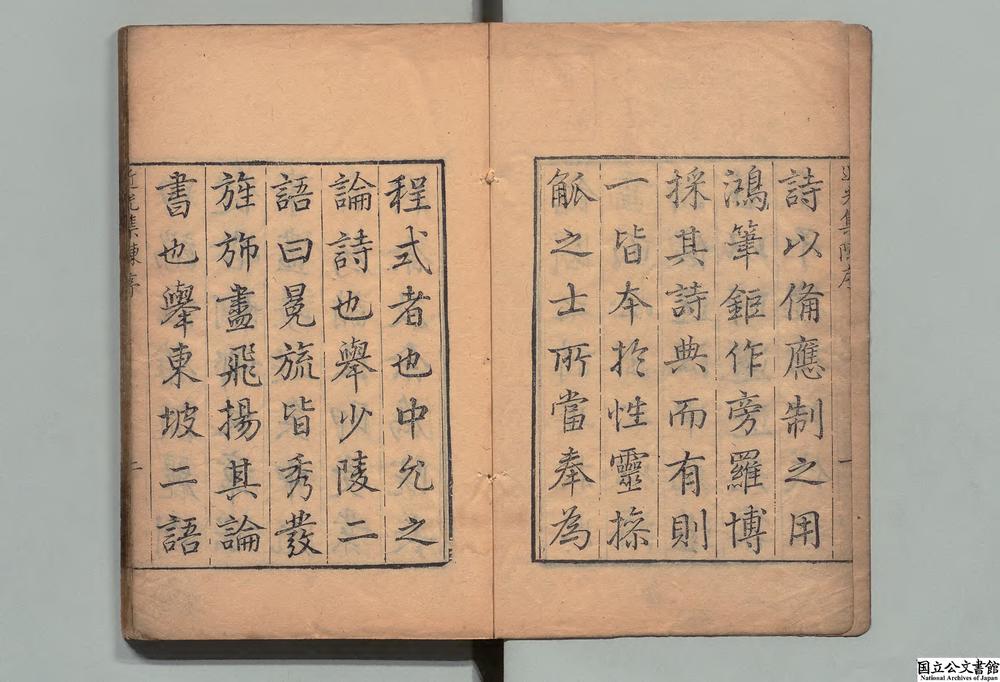 詩以俻應制之用
鴻筆鉅作旁羅博
採其詩典而有則
一皆本於性靈操
觚之士所當奉為
程式者也中允之
論詩也舉少陵二
語曰冕旒皆秀發
旌斾盡飛揚其論
書也舉東坡二語
國立公文書館
National Archives of Japan